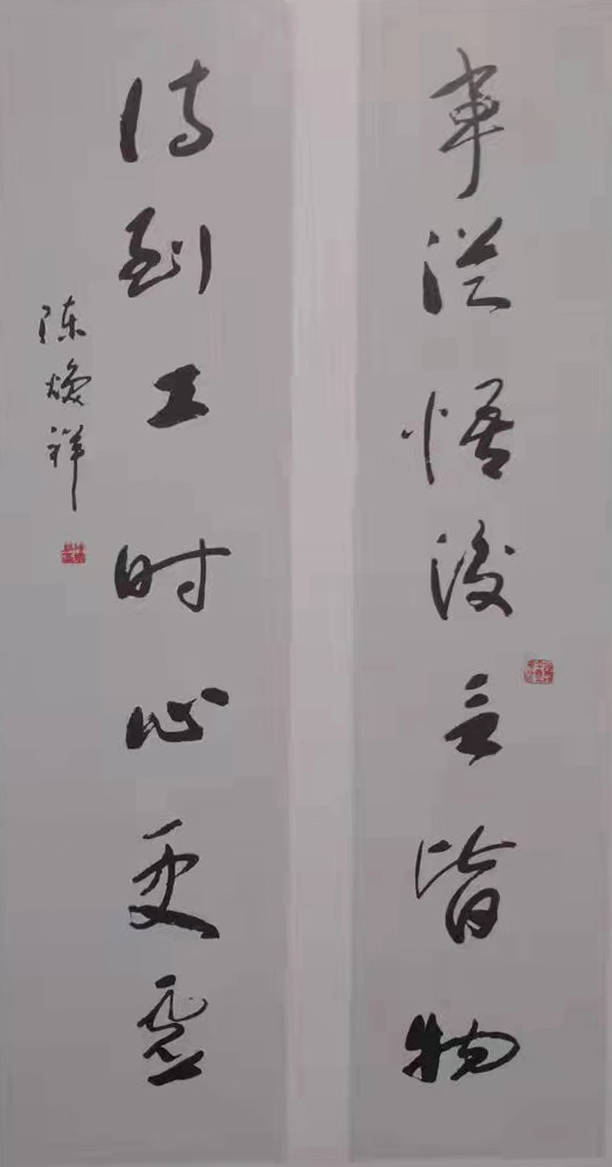 事從悟後言皆物
诗到工时心更虚
陈焕祥